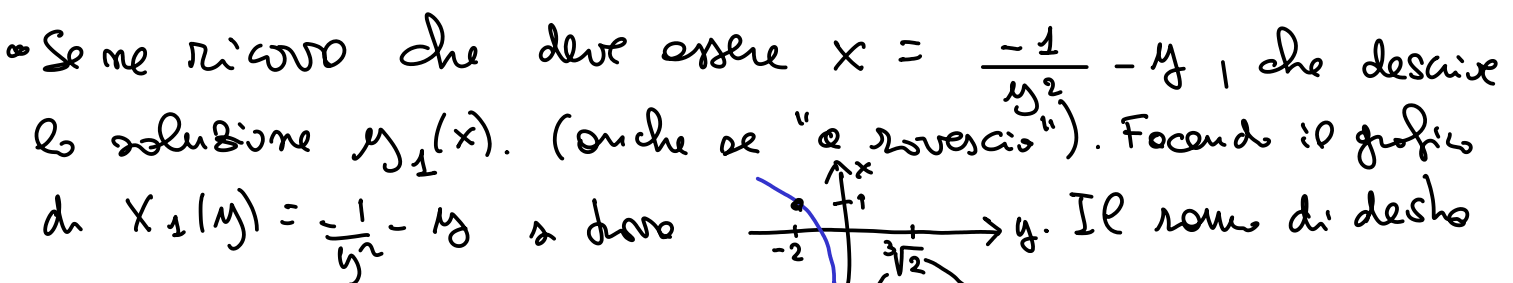 • Se ne ricavo che deve essere x = -1/y² - y, che descrive
la soluzione y₁(x). (anche se "a rovescio"). Facendo il grafico
di X₁(y) = -1/y² - y si trova x 1 -2 ∛2 y. Il ramo di destra